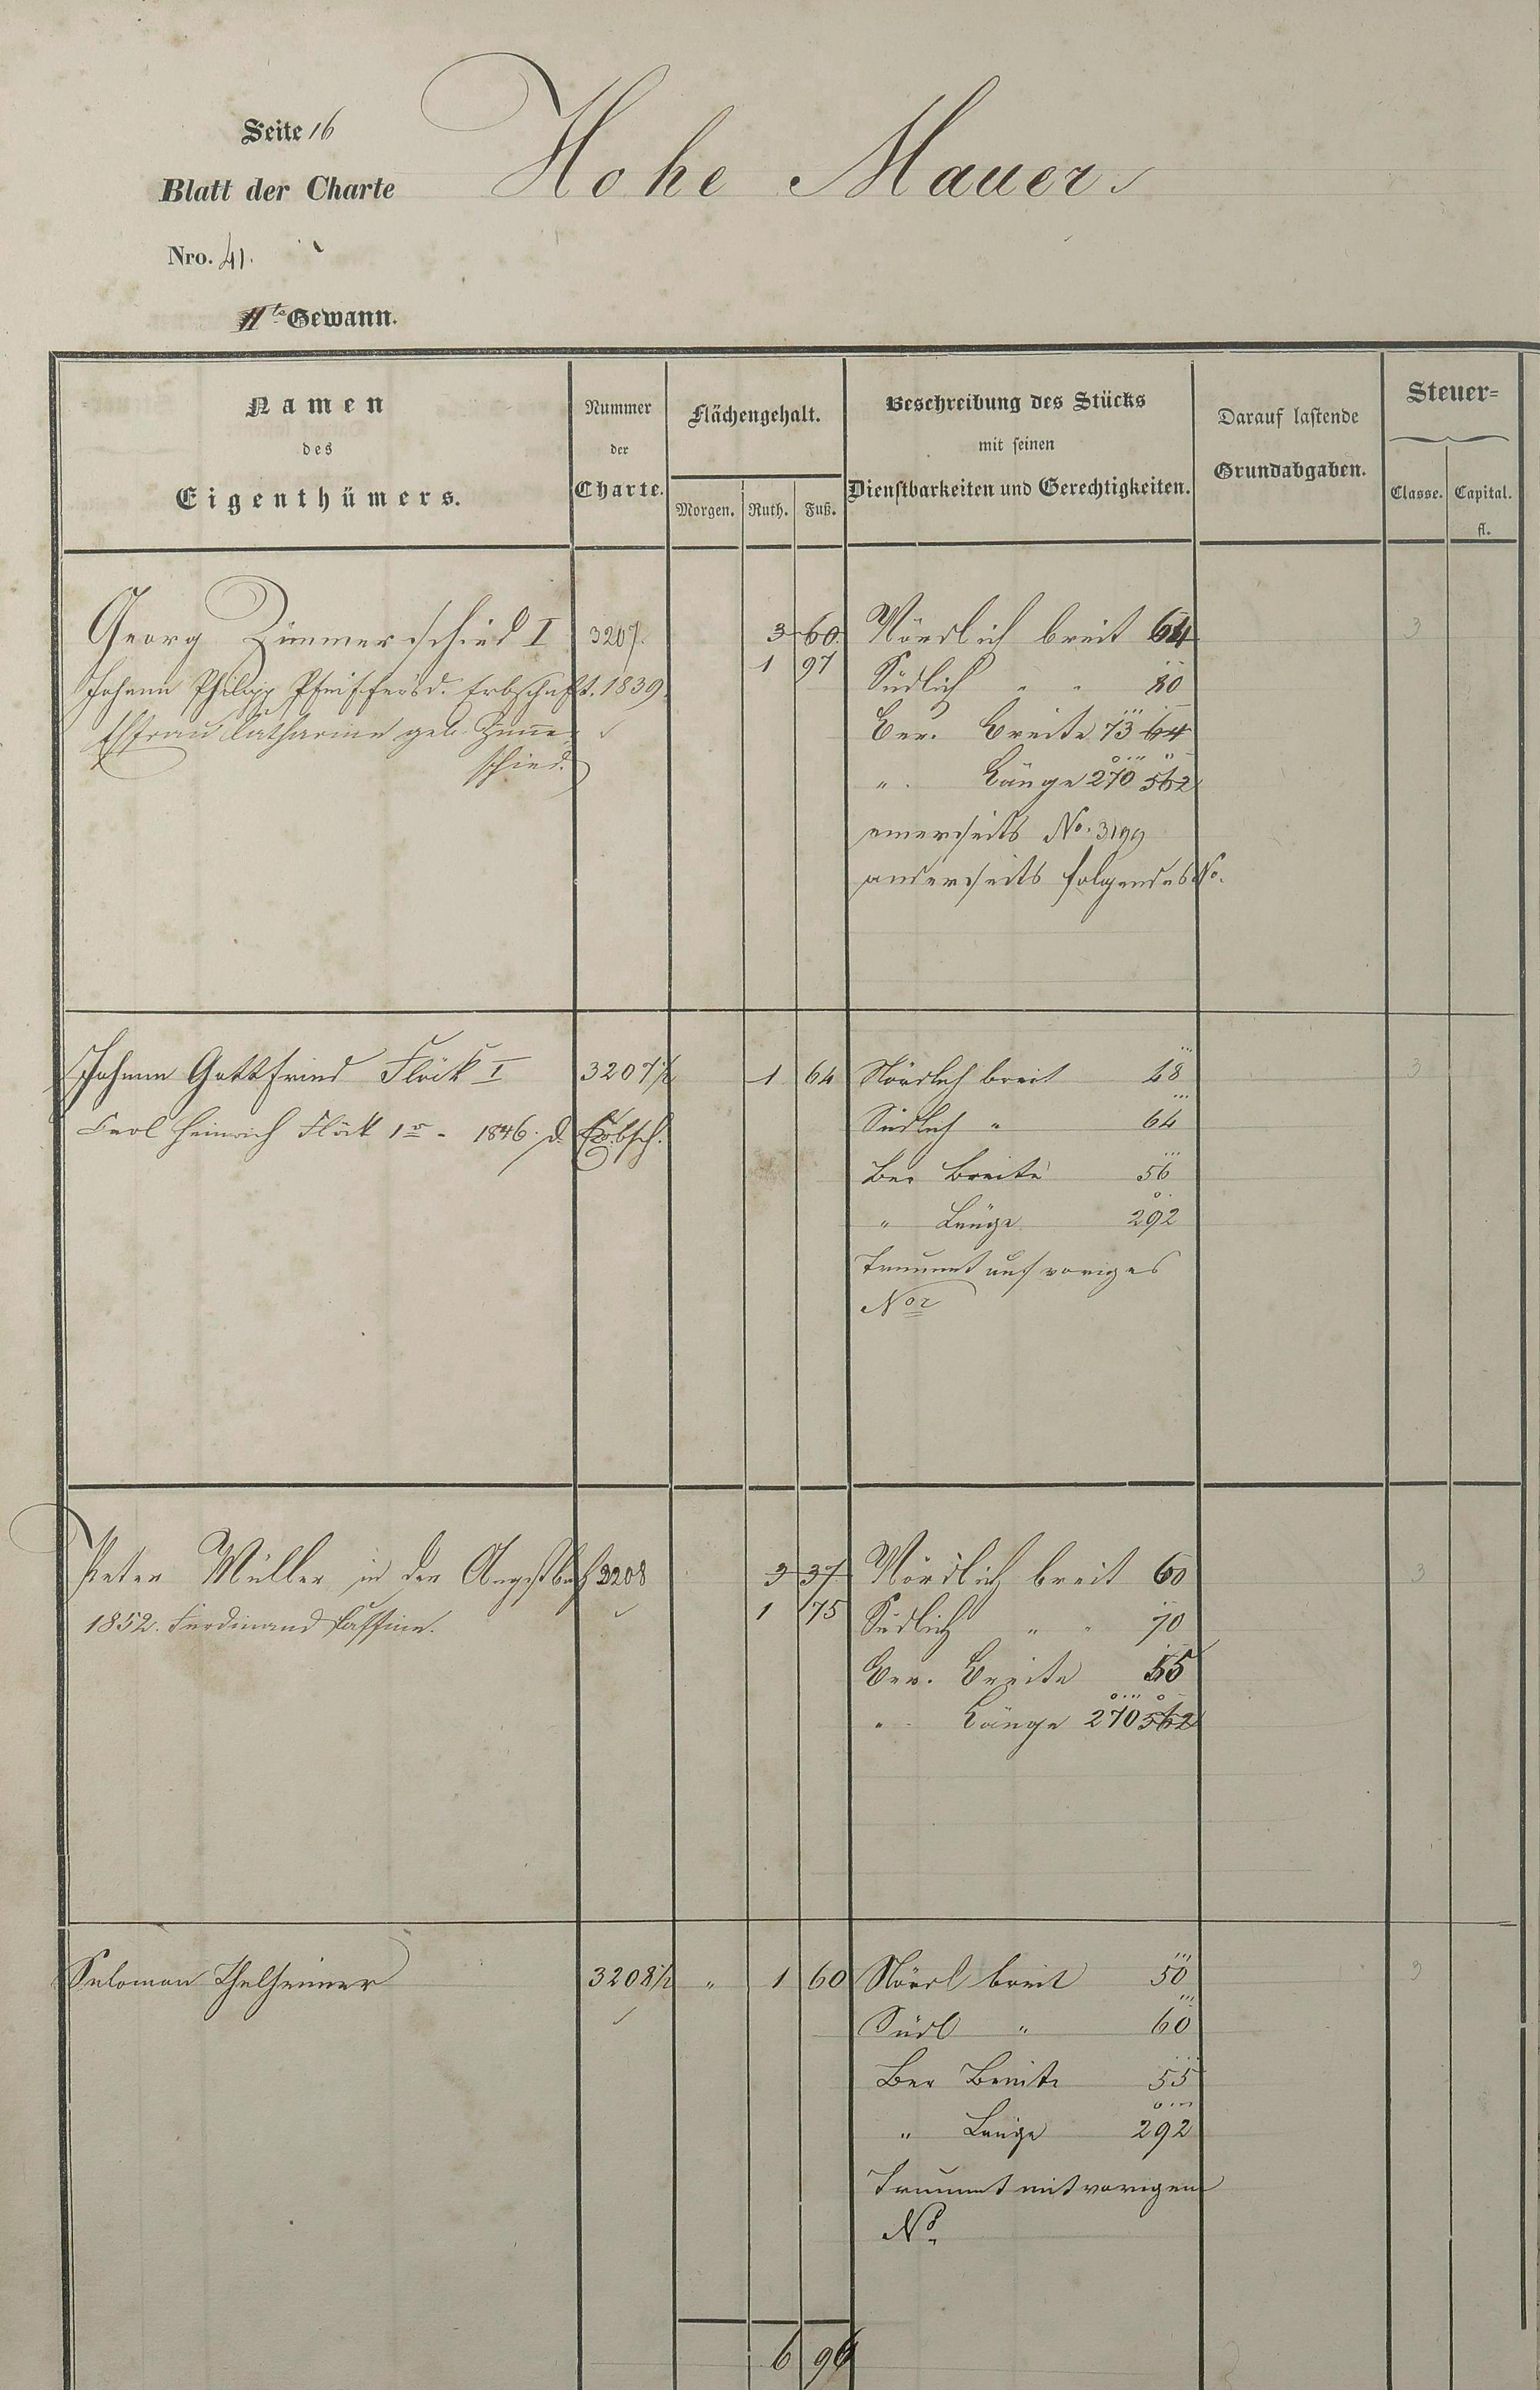 Seite 16
Hohe Mauer
Blatt der Charte
Nro. 41.
IIte Gewann.
Namen
des
Eigenthümers.
Nummer
der
Charte.
Flächengehalt.
Morgen. Ruth. Fuß.
Beschreibung des Stücks
mit seinen
Dienstbarkeiten und Gerechtigkeiten.
Darauf lastende
Grundabgaben.
Steuer=
Classe. Capital.
fl.
Georg Zimmerschied I 3207. 3 60 Nördlich breit 64 3
1 97
Johann Philipp Pfeiffers d. Erbschaft. 1839. Südlich " " 80
Ehfrau Catharine geb. Zimme Ber. Breite 73 64
schied.
" Länge 270 562
einerseits No. 3199
anderseits folgendes No.
Johann Gottfried Flöck I 3207½ 1 64 Nördlich breit 48 3
Carl Heinrich Flöck 1r - 1846. d. Erbsch. Südlich " 64
Ber Breite 56
" Länge 292
Trennt auf voriges
Nor
Peter Müller in der 3208 3 37 Nördlich breit 60 3
1 75
1852. Ferdinand Südlich " " 70
Ber. Breite 55
" Länge 270 562
Salomon Thalheimer 3208½ " 1 60 Nördl breit 50 3
Südl " 60
Ber Breite 55
" Länge 292
Trennt mit vorigem
No.
6 96